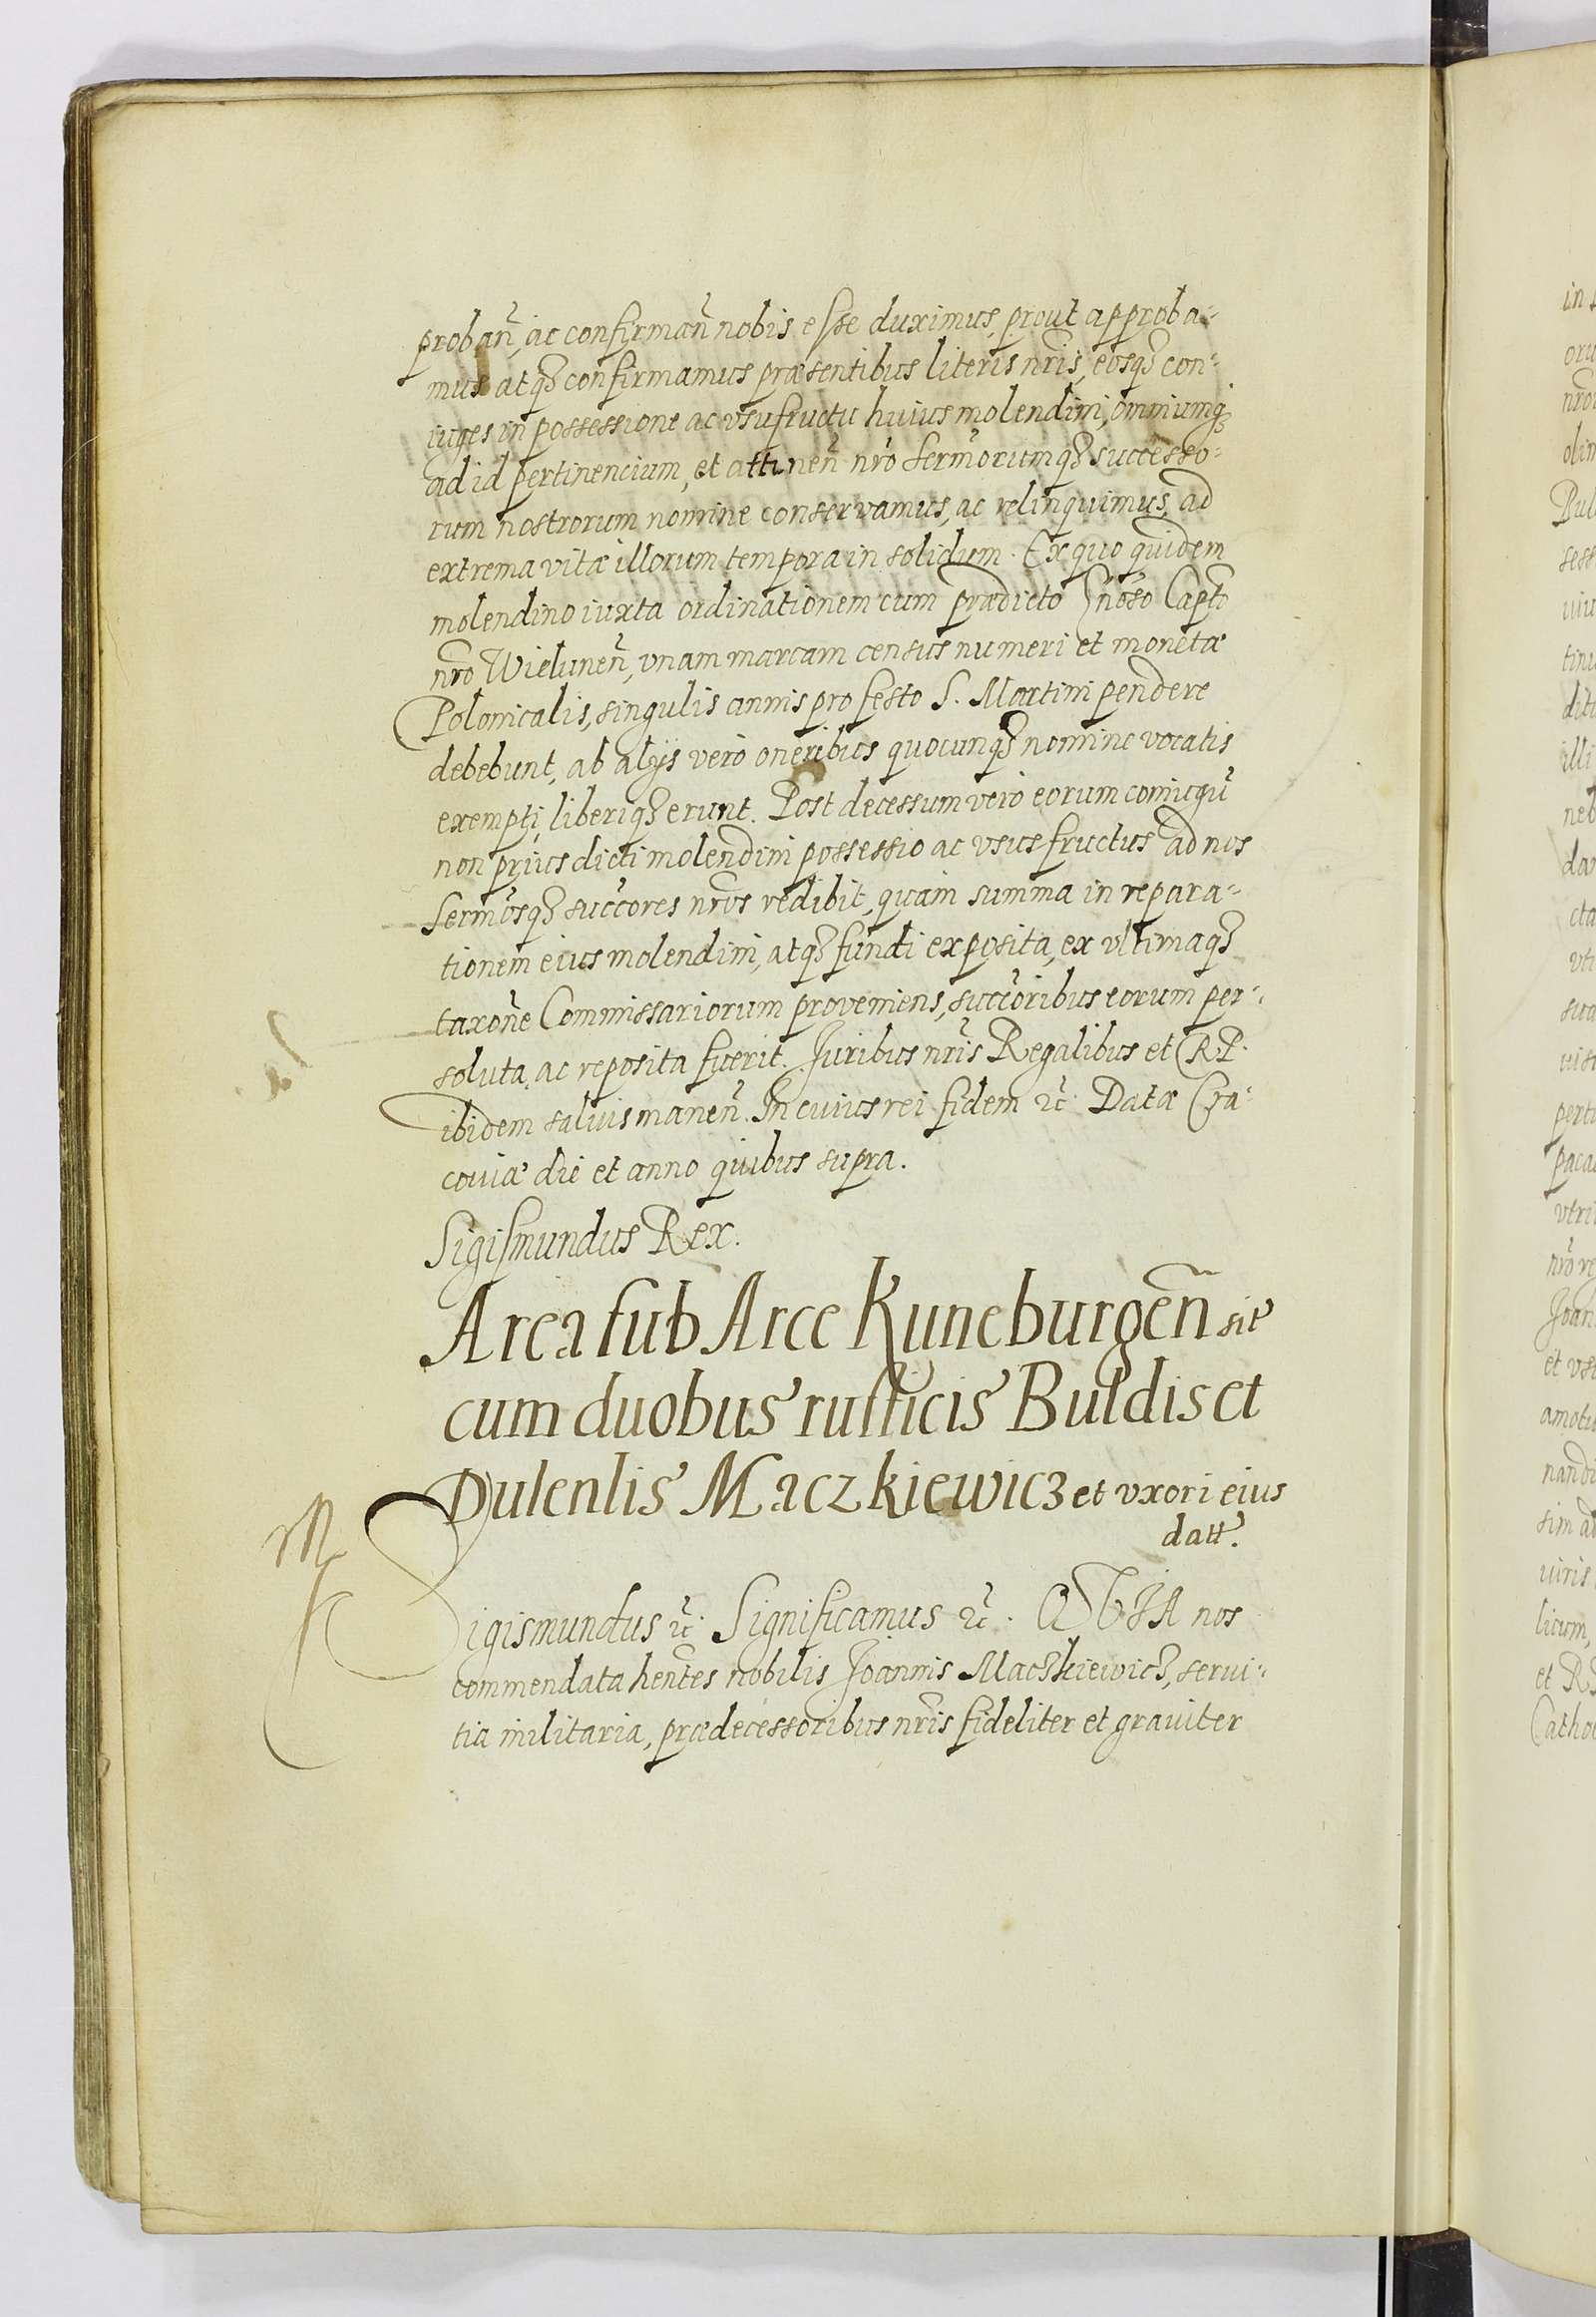 proban̄, ac confirman̄ nobis esse duximus, prout approba-
mus atq₃ confirmamus præsentibus literis nr̄is, eosq₃ con-
iuges in possessione ac vsufructu huius molendini, omniumq₃
ad id pertinencium, et attinen̄ nr̄o Serm̄orumq₃ successo-
rum nostrorum nomine conservamus, ac relinquimus, ad
extrema vitæ illorum tempora in solidum. Ex quo quidem
molendino iuxta ordinationem cum prædicto Gn̄oso Capto
nr̄o Wielunen̄, vnam marcam census numeri et monetæ
Polonicalis, singulis annis pro festo S. Martini pendere
debebunt, ab alijs vero oneribus quocunq₃ nomine vocatis
exempti, liberiq₃ erunt. Post decessum vero eorum coniugū
non prius dicti molendini possessio ac vsusfructus ad nos
Serm̄osq₃ succ̄ores nr̄os redibit, quam summa in repara-
tionem eius molendini, atq₃ fundi exposita, ex vltimaq₃
taxōne Commissariorum proveniens, succ̄oribus eorum per-
soluta, ac reposita fuerit. Juribus nr̄is Regalibus et RP.
ibidem salvis manen̄. In cuius rei fidem ꝛc̄. Datæ Cra-
coviæ die et anno quibus supra.
Sigismundus Rex.
Area sub Arce Kuneburgen̄ sit
cum duobus rusticis Buldis et
Dulenlis Maczkiewicz et vxori eius
datt.
Sigismundus ꝛc̄. Significamus ꝛc̄. QVIA nos
commendata hen̄tes nobilis Joannis Maczkiewicz, servi-
tia militaria, prædecessoribus nr̄is fideliter et graviter